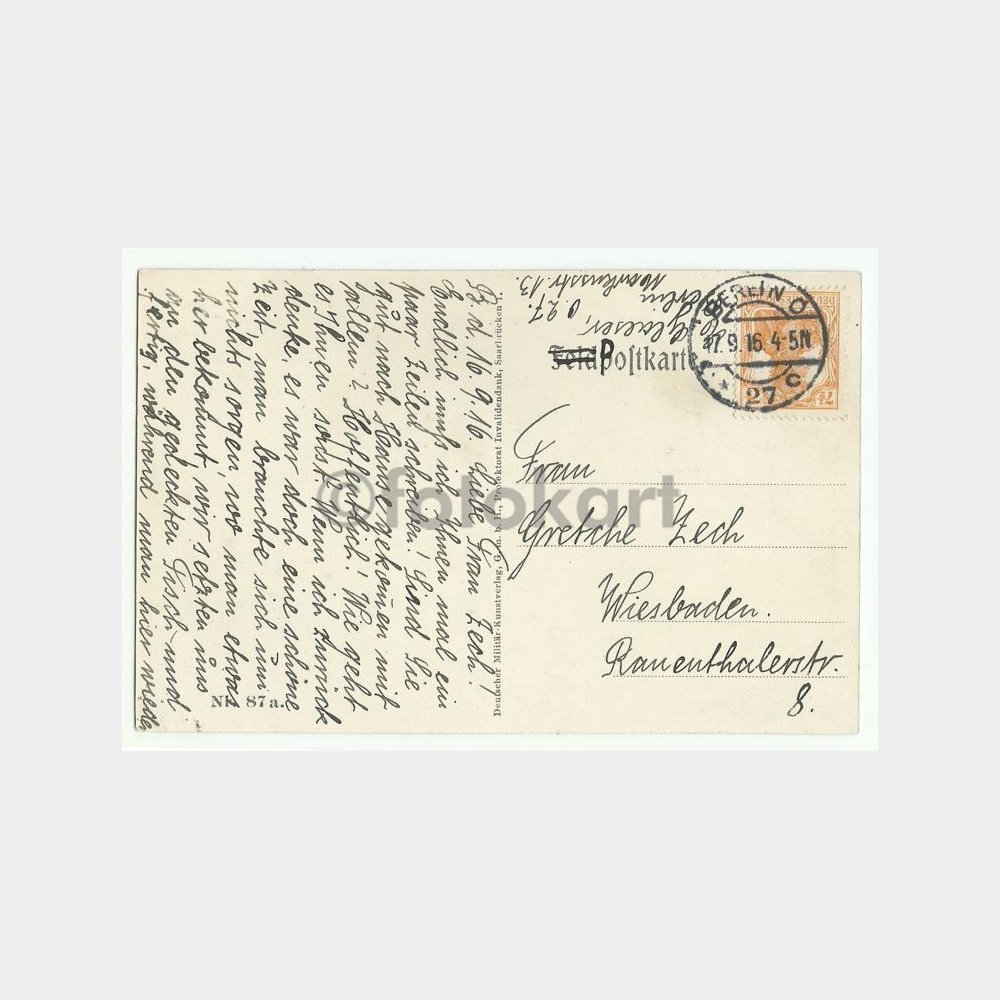 B. d. 16. 9. 16. Liebe Frau Zech!
Endlich muß ich Ihnen mal ein
paar Zeilen schreiben! Sind Sie
gut nach Hause gekommen mit
allem? Hoffentlich! Wie geht
es Ihnen sonst? Wenn ich zurück
denke, es war doch eine schöne
Zeit, man brauchte sich um
nichts sorgen, wo man etwas
her bekommt, wir setzten uns
an den gedeckten Tisch und
fertig, während man hier wieder
Nr. 87a.
Deutscher Militär-Kunstverlag, G. m. b. H., Protektorat Invalidendank, Saarbrücken 1.
Berlin
O 27.
Markusstr. 13.
Feldpostkarte
P
BERLIN O
17.9.16.4-5N
* 27 c
DEUTSCHES
7½
Frau
Gretche Zech
Wiesbaden.
Rauenthalerstr.
8.
©fotokart